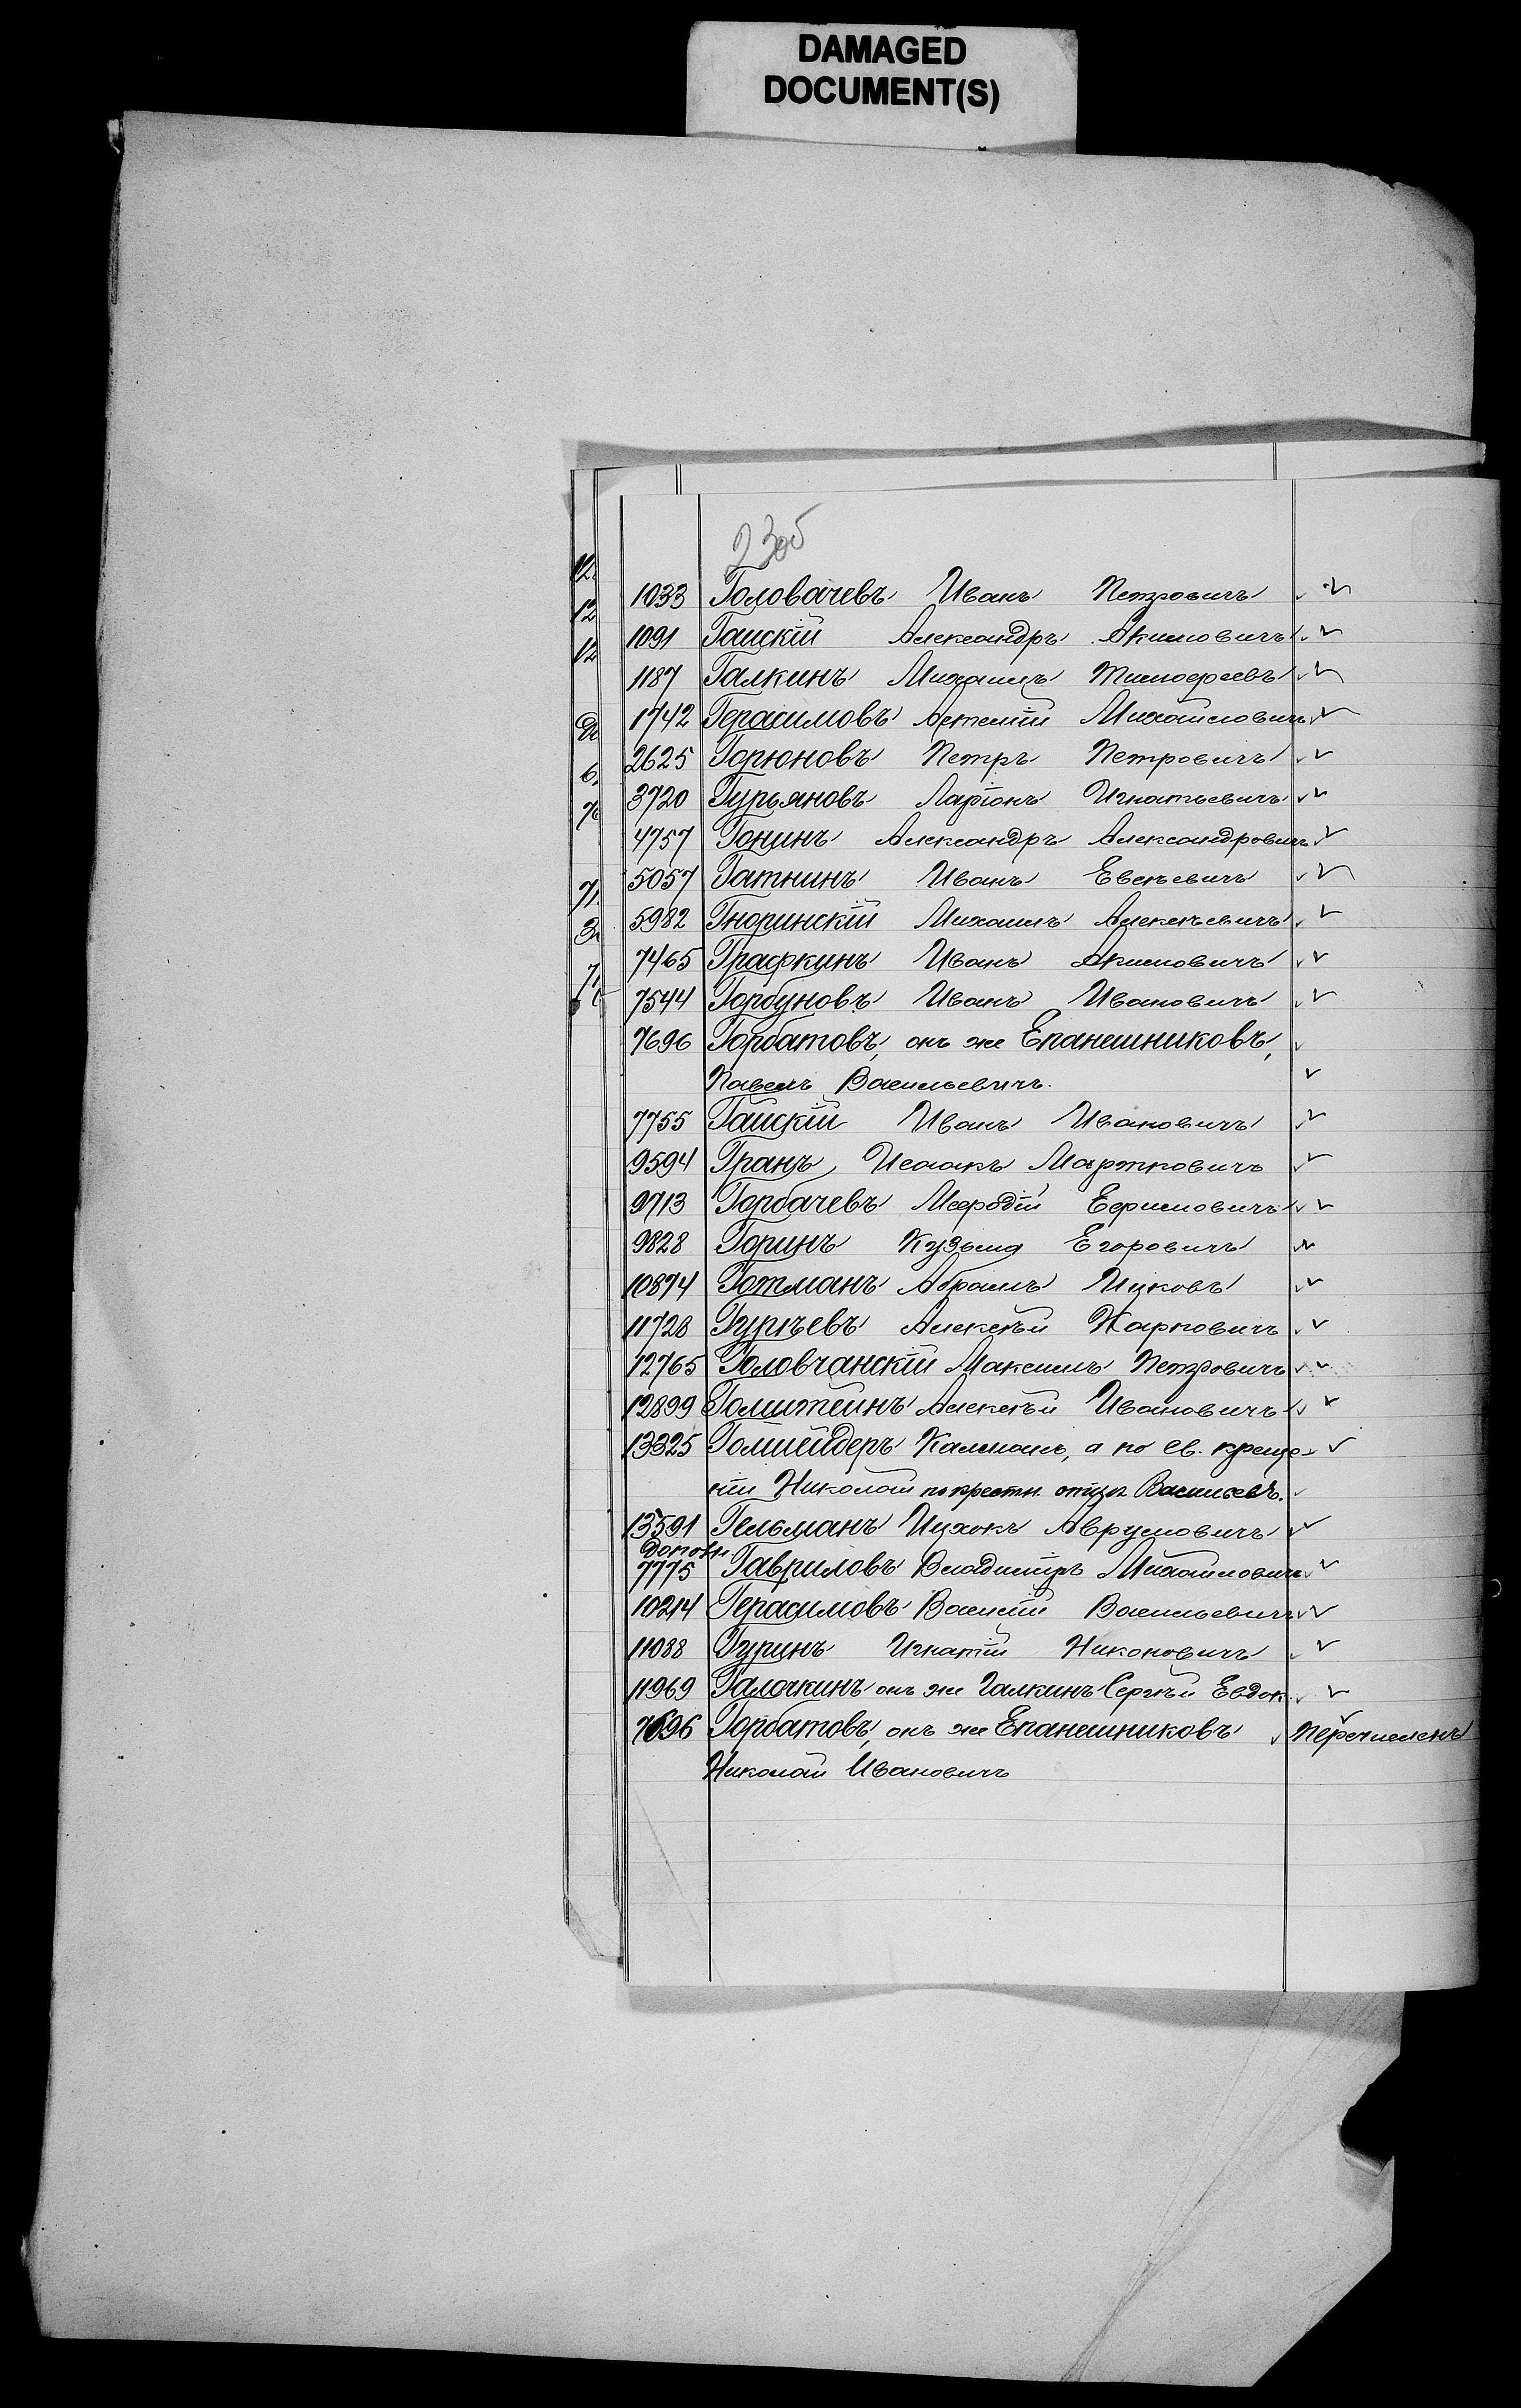 DAMAGED
DOCUMENT(S)
23об
1033 Головачевъ Иванъ Петровичъ
1091 Гайскій Александръ Акимовичъ
1187 Галкинъ Михаилъ Тимофеевъ
1742 Герасимовъ Артемій Михайловичъ
2625 Горюновъ Петръ Петровичъ
3720 Гурьяновъ Ларіонъ Игнатьевичъ
4757 Гонинъ Александръ Александровичъ
5057 Гатнинъ Иванъ Евсѣевичъ
5982 Гноринскій Михаилъ Алексѣевичъ
7465 Графкинъ Иванъ Акимовичъ
7544 Горбуновъ Иванъ Ивановичъ
7696 Горбатовъ, онъ же Епанешниковъ,
Павелъ Васильевичъ.
7755 Гайскій Иванъ Ивановичъ
9594 Гранъ, Исаакъ Марtковичъ
9713 Горбачевъ Мефодій Ефимовичъ
9828 Горинъ Кузьма Егоровичъ
10874 Готманъ Абрамъ Ицковъ
11728 Гурьевъ Алексѣй Карповичъ
12765 Головчанскій Максимъ Петровичъ
12899 Голштейнъ Алексѣй Ивановичъ
13325 Голшейдеръ Калманъ, а по св. креще-
ніи Николай по крестн. отцу Васильевъ.
13591 Гельманъ Ицхокъ Аврумовичъ
Дополн.
7775 Гавриловъ Владимiръ Михайловичъ
10214 Герасимовъ Василій Васильевичъ
11088 Гуринъ Игнатій Никоновичъ
11969 Галочкинъ онъ же Галкинъ Сергѣй Евдок.
7696 Горбатовъ, онъ же Епанешниковъ Перечисленъ
Николай Ивановичъ